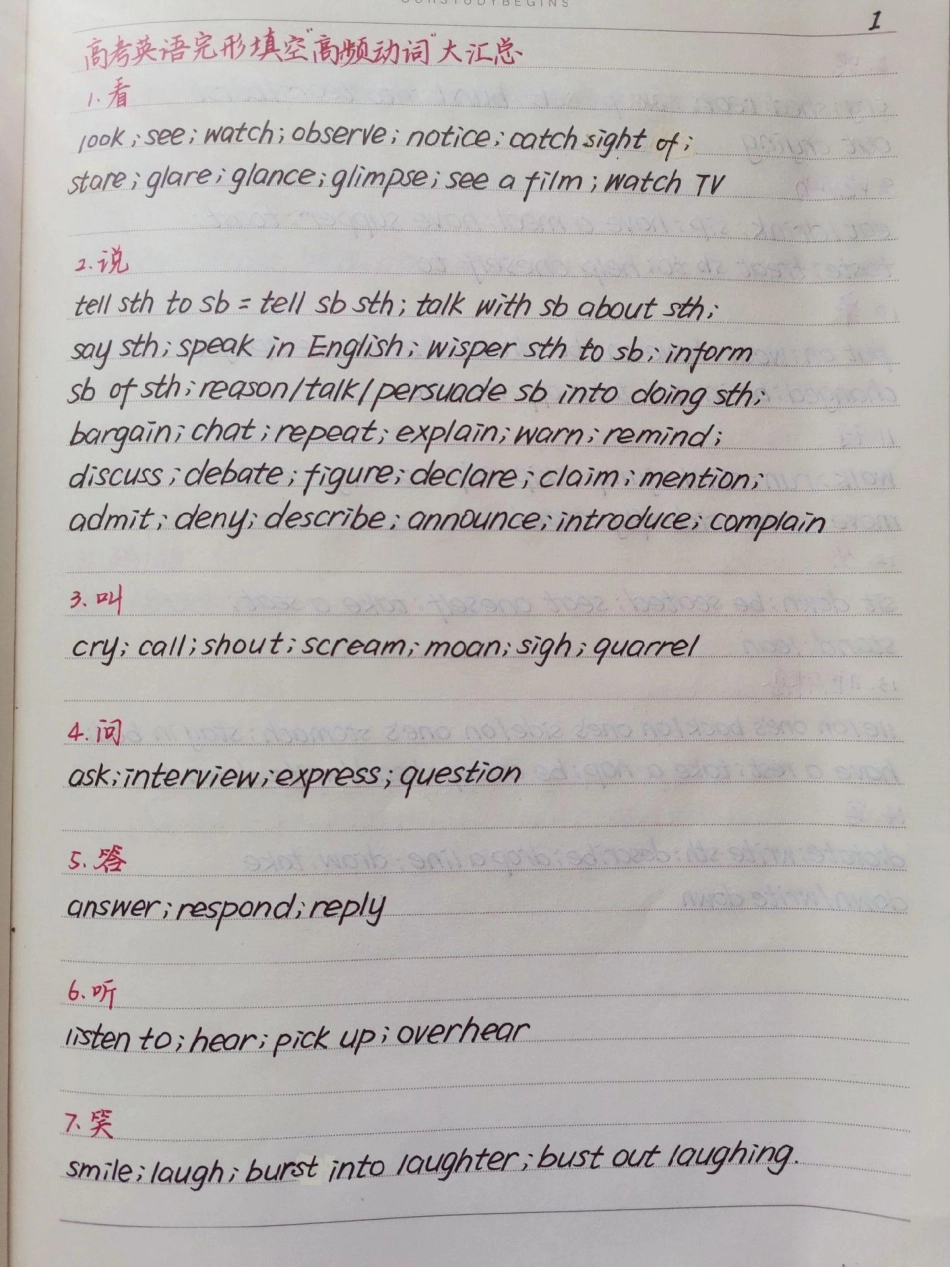 OURSTUDYBEGINS
1
高考英语完形填空"高频动词"大汇总
1.看
look; see; watch; observe; notice; catch sight of;
stare; glare; glance; glimpse; see a film; watch TV
2.说
tell sth to sb = tell sb sth; talk with sb about sth;
say sth; speak in English; wisper sth to sb; inform
sb of sth; reason/talk/persuade sb into doing sth;
bargain; chat; repeat; explain; warn; remind;
discuss; debate; figure; declare; claim; mention;
admit; deny; describe; announce; introduce; complain
3.叫
cry; call; shout; scream; moan; sigh; quarrel
4.问
ask; interview; express; question
5.答
answer; respond; reply
6.听
listen to; hear; pick up; overhear
7.笑
smile; laugh; burst into laughter; bust out laughing.